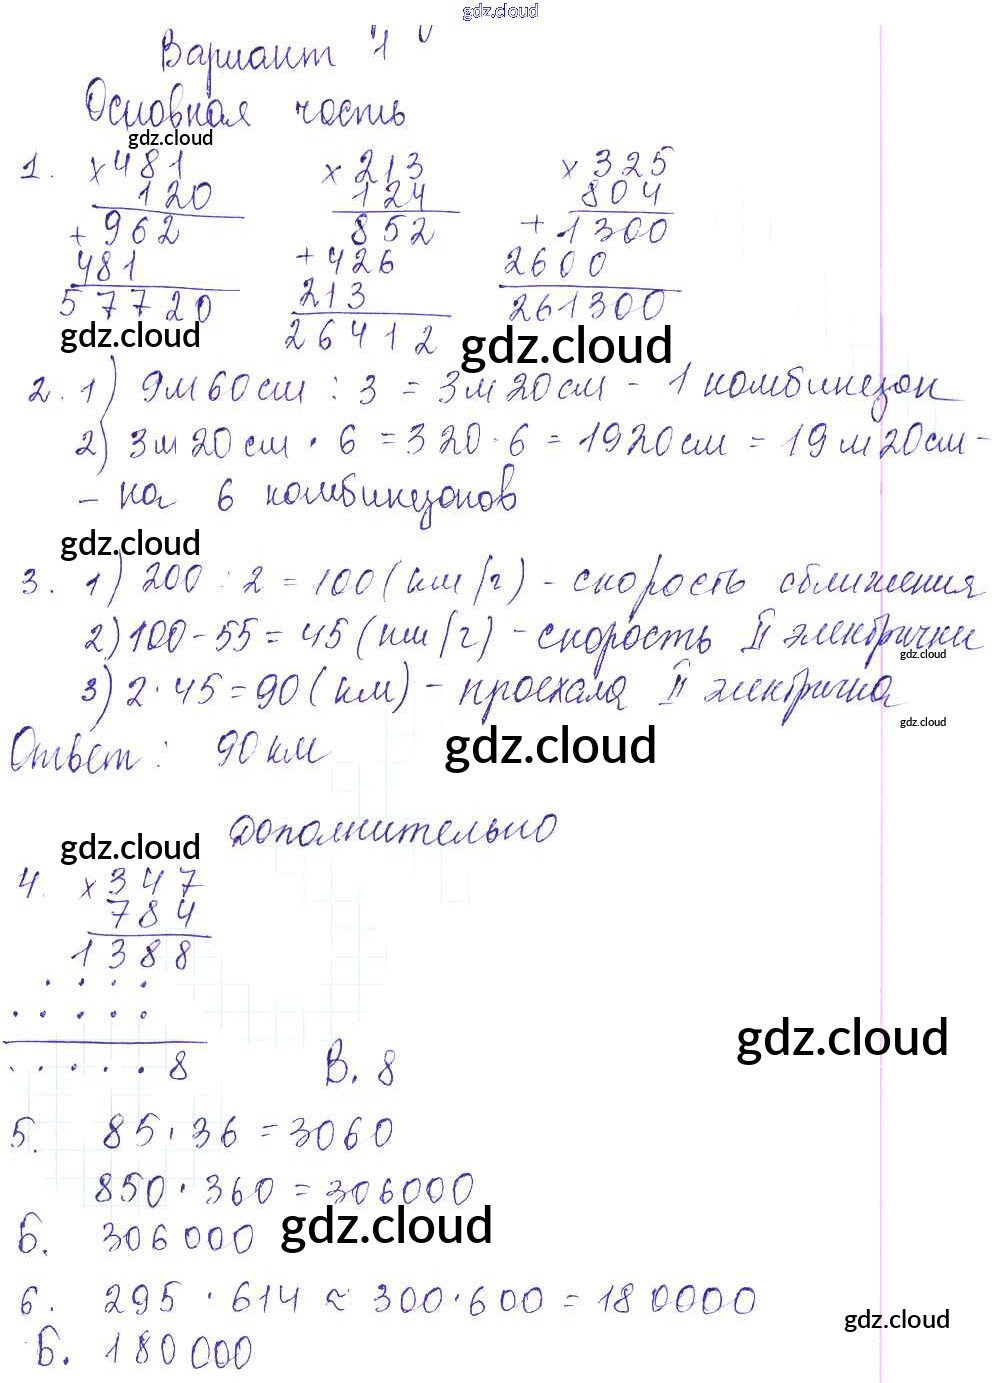 gdz.cloud
Вариант "1"
Основная часть
gdz.cloud
1. ×481 ×213 ×325
120 124 804
+962 852 +1300
481 +426 2600
57720 213 261300
26412
gdz.cloud gdz.cloud
2. 1) 9м 60см : 3 = 3м 20см - 1 комбинезон
2) 3м 20см · 6 = 320 · 6 = 1920см = 19м 20см -
- на 6 комбинезонов
gdz.cloud
3. 1) 200 : 2 = 100 (км/г) - скорость сближения
2) 100 - 55 = 45 (км/г) - скорость II электрички
gdz.cloud
3) 2 · 45 = 90 (км) - проехала II электричка
gdz.cloud
Ответ: 90 км gdz.cloud
Дополнительно
gdz.cloud
4. ×347
784
1388
. . . .
. . . . .
gdz.cloud
. . . . . 8 В. 8
5. 85 · 36 = 3060
850 · 360 = 306000
Б. 306000 gdz.cloud
6. 295 · 614 ≈ 300 · 600 = 180000
gdz.cloud
Б. 180000